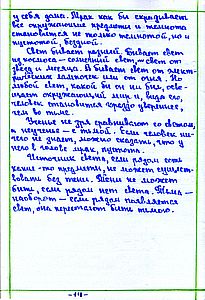 у себя дома. Мрак как бы скрадывает
все окружающие предметы и темнота
становится не только темнотой, но и
пустотой, бездной.
Свет бывает разный. Бывает свет
из космоса – солнечный свет, и свет от
звёзд и месяца. А бывает свет от элект-
рических лампочек или от огня. Но
любой свет, какой бы он ни был, осве-
щает окружающий мир и, видя его,
человек становится гораздо увереннее,
чем во тьме.
Ученье не зря сравнивают со светом,
а неученье – с тьмой. Если человек ни-
чего не знает, можно сказать, что у
него в голове мрак, пустота.
Источник света, если рядом есть
какие-то предметы, не может сущест-
вовать без тени. Тени не может
быть, если рядом нет света. Тьма –
наоборот – если рядом появляется
свет, она перестаёт быть тьмою.